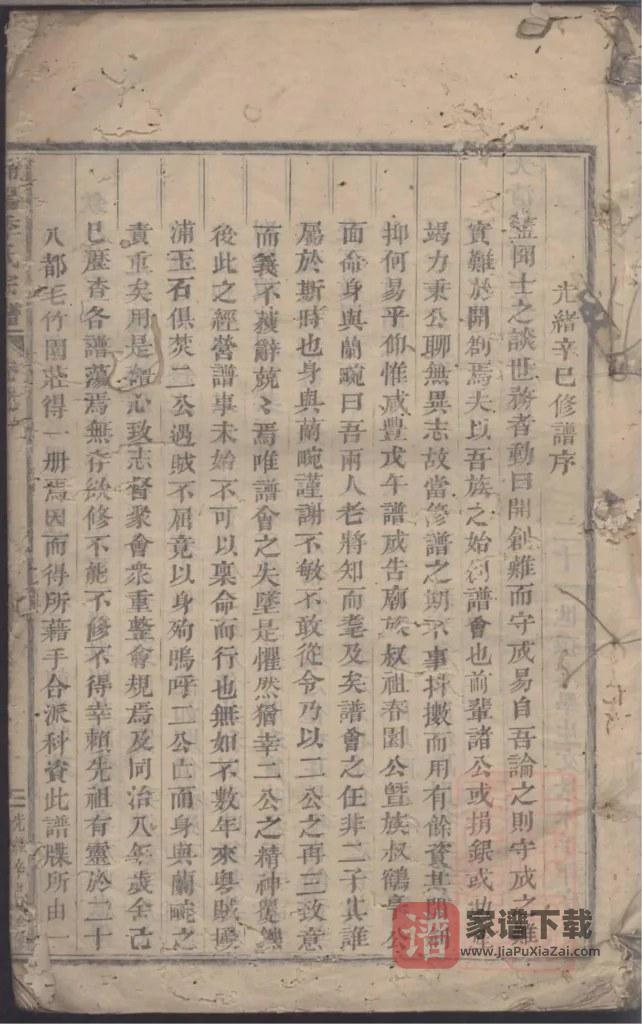 光緒辛巳修譜序
蓋聞士之談世務者動曰開創難而守成易自吾論之則守成之難
實難於開創焉夫以吾族之始創譜會也前輩諸公或捐銀或
竭力秉公聊無異志故當修譜之期不事抖擻而用有餘資其開創
抑何易乎仰惟咸豐戊午譜成告廟族叔祖春園公暨族叔鶴亭公
面命身與蘭畹曰吾兩人老將知而耄及矣譜會之任非二子其誰
屬於斯時也身與蘭畹謹謝不敏不敢從令乃以二公之再三致意
而義不獲辭兢〻焉唯譜會之失墜是懼然猶幸二公之精神矍鑠
後此之經營譜事未始不可以稟命而行也無如不數年來粵賊
浦玉石俱焚二公遇賊不屈竟以身殉嗚呼二公亡而身與蘭畹之
責重矣用是
心致志督衆會衆重整會規焉及同治八年歲余己
巳歷查各譜蕩焉無存欲修不能不修不得幸賴先祖有靈於二十
八都毛竹園莊得一册焉因而得所藉手合派科資此譜牒所由
氏宗譜
家谱下载
www.JiaPuXiaZai.com
谱